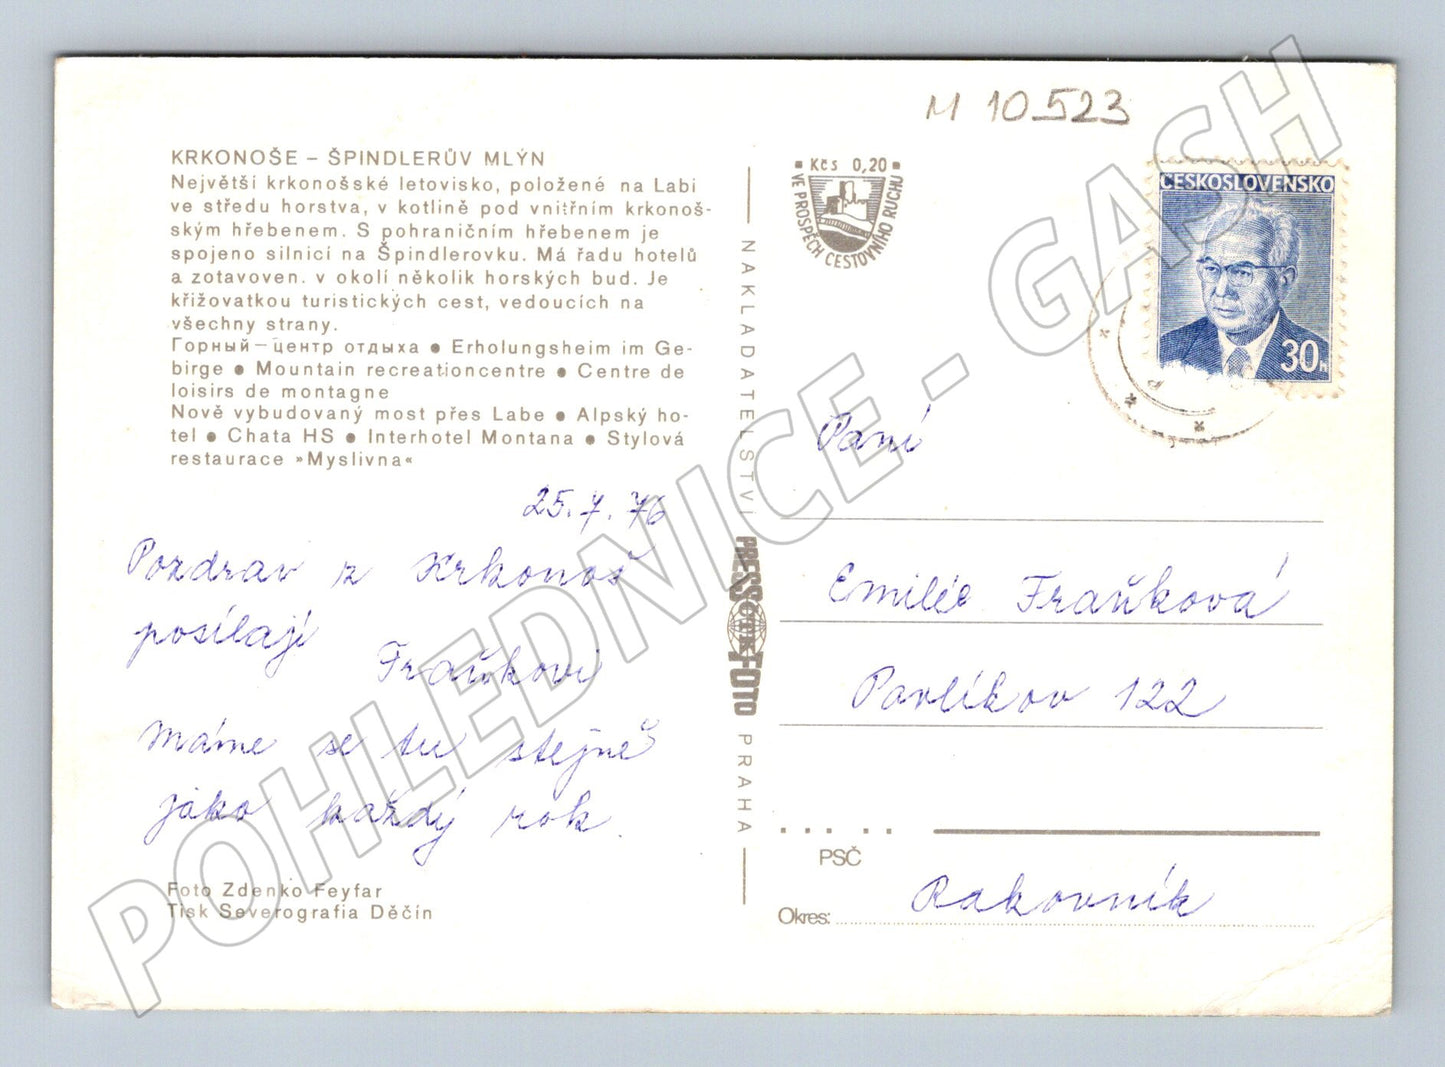 M 10523
KRKONOŠE – ŠPINDLERŮV MLÝN
Největší krkonošské letovisko, položené na Labi
ve středu horstva, v kotlině pod vnitřním krkonoš-
ským hřebenem. S pohraničním hřebenem je
spojeno silnicí na Špindlerovku. Má řadu hotelů
a zotavoven. v okolí několik horských bud. Je
křižovatkou turistických cest, vedoucích na
všechny strany.
Горный — центр отдыха ● Erholungsheim im Ge-
birge ● Mountain recreationcentre ● Centre de
loisirs de montagne
Nově vybudovaný most přes Labe ● Alpský ho-
tel ● Chata HS ● Interhotel Montana ● Stylová
restaurace »Myslivna«
25.7.76
Pozdrav z Krkonoš
posílají
Fraňkovi
Máme se tu stejně
jako každý rok.
Foto Zdenko Feyfar
Tisk Severografia Děčín
NAKLADATELSTVÍ
PRESSFOTO
ČTK
PRAHA
Kčs 0,20
VE PROSPĚCH CESTOVNÍHO RUCHU
ČESKOSLOVENSKO
30H
Paní
Emilie Fraňková
Pavlíkov 122
PSČ
Okres: Rakovník
POHLEDNICE - GASH